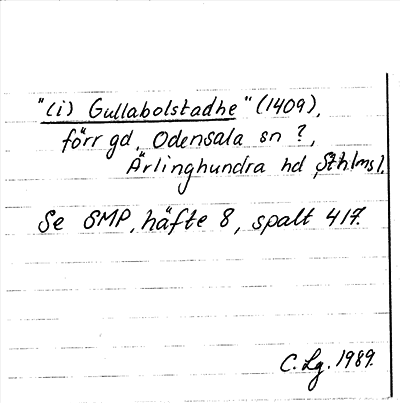 "(i) Gullabolstadhe" (1409),
förr gd, Odensala sn ?,
Ärlinghundra hd, Sthlms l.
Se SMP, häfte 8, spalt 417.
C. Lg. 1989.